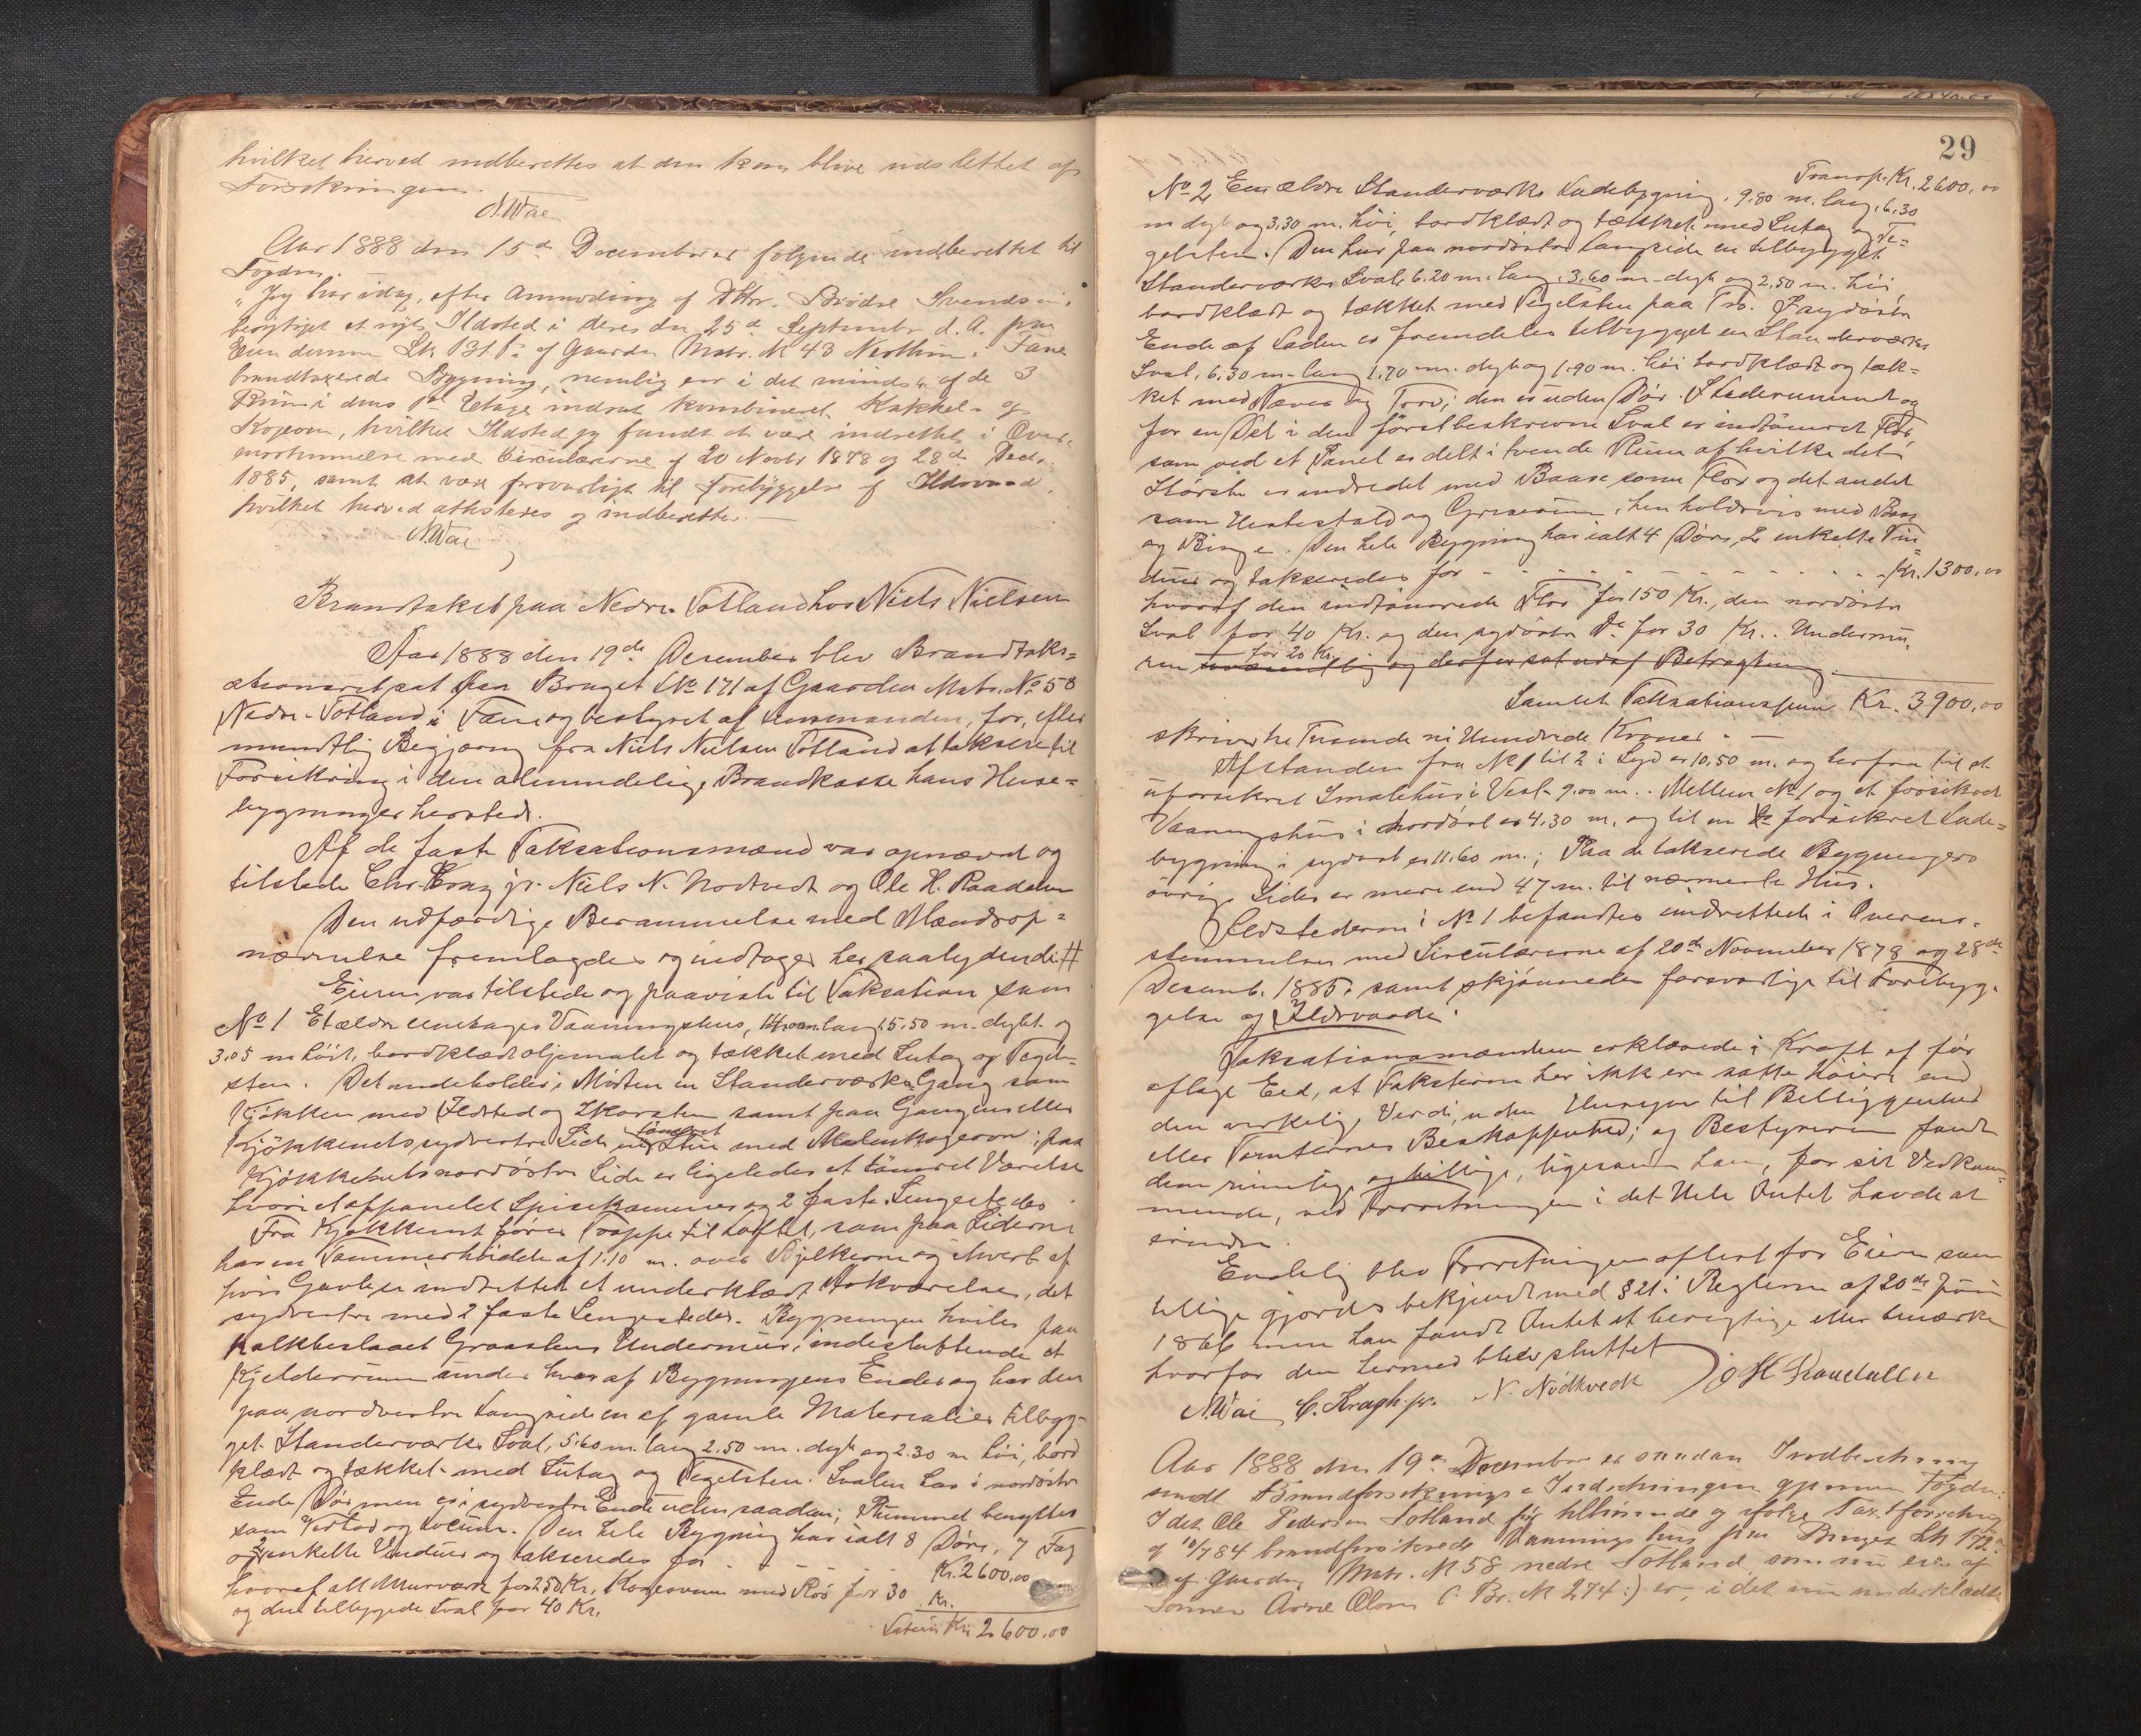 hvilket herved indberettes at den kan blive udslettet af
Forsikringen.
N. Wae
Aar 1888 den 15de December er følgende indberettet til
Fogden.
"Jeg har idag, efter Anmodning af DHrr. Brødre Svendsen,
besigtiget et nyt Ildsted i deres den 25de September d. A. paa
Eiendommen af Gaarden Matr. № 43 Nestun i Fane
brandtaxerede Bygning, nemlig en i det mindste af de 3
Rum i dens 1ste Etage indsat kombineret Kakkel- og
Kogeovn, hvilket Ildsted jeg fandt at være indrettet i Over-
ensstemmelse med Circulærerne af 20 Novbr 1878 og 28de Decbr.
1885, samt at være forsvarligt til Forebyggelse af Ildsvaade,
hvilket herved attesteres og indberettes.
N. Wae
Brandtakst paa Nedre Totland hos Niels Nielsen
Aar 1888 den 19de December blev Brandtaks=
ationsret sat paa Bruget № 171 af Gaarden Matr. № 58
Nedre-Totland i Fane og bestyret af Lensmanden, for, efter
mundtlig Begjæring fra Niels Nielsen Totland at taksere til
Forsikring i den almindelige Brandkasse hans Huse=
bygninger hersteds.
Af de faste Taksationsmænd var opnævnt og
tilstede Chr. Krag jr. Niels N. Nodtvedt og Ole H. Raadalen
Den udfærdige Berammelse med Mændsop=
nævnelse fremlagdes og indtages her saalydende #
Eieren var tilstede og paaviste til Taksation som
№ 1 Et ældre eenetages Vaaningshus, 14.00 m. langt 5.50 m. dybt og
3.05 m høit, bordklædt oljemalet og tækket med Sutag og Tegel-
sten. Det indeholder i Midten en Standerværks Gang som
Kjøkken med Ildsted og Skorsten samt paa Gangens eller
Kjøkkenets sydvestre Side en tømret Stue med Kogeovn; paa
Kjøkkenets nordøstre Side er ligeledes et tømret Værelse
hvori et afpanelet Spisekammer og 2 faste Sengesteder.
Fra Kjøkkenet fører Trappe til Loftet, som paa Siderne
har en Tømmerhøidde af 1.10 m. over Bjelkerne og i hvert af
hvis Gavle er indrettet et underklædt Arkværelse, det
sydvestre med 2 faste Sengesteder. Bygningen hviler paa
kalkbeslaaet Graastens Undermur, indesluttende et
Kjelderrum under hver af Bygningens Ender og har den
paa nordvestre Langside en af gamle Materialier tilbyg-
get Standerværks Sval, 5.60 m. lang 2.50 m. dyb og 2.30 m høi, bord
klædt og tækket med Sutag og Tegelsten. Svalen har i nordøstre
Ende Dør men er i sydvestre Ende uden saadan; Rummet benyttes
som Vedlad og locum. Den hele Bygning har ialt 8 Døre, 7 Fag
og 2 enkelte Vinduer og takseredes for - - - Kr. 2600,00
hvoraf alt Murværk for 250 Kr., Kogeovnen med Rør for 30 Kr.
og den tilbyggede Sval for 40 Kr.
Lateris Kr. 2600.00
29
Transp. Kr. 2600,00
№ 2, En ældre Standerværks Ladebygning, 9.80 m. lang, 6.30
m dyb og 3.30 m. høi, bordklædt og tækket med Sutag og Te=
gelsten. Den har paa nordøstre Langside en tilbygget
Standerværks Sval, 6.20 m. lang, 3.60 m. dyb og 2.50 m. høi,
bordklædt og tækket med Tegelsten paa Tro. I sydøstre
Ende af Laden er fremdeles tilbygget en Standerværks
Sval, 6,30 m. lang 1.70 m. dyb og 1.90 m. høi bordklædt og tæk=
ket med Næver og Torv; den er uden Dør. I Laderummet og
for en Del i den førstbeskrevne Sval er indtømret Flor,
som ved et Panel er delt i tvende Rum af hvilke det
største er indredet med Baase som Flor og det andet
som Hestestald og Griserum, henholdsvis med Baas
og Binge. Den hele Bygning har ialt 4 Døre, 2 enkelte Vin=
duer og takseredes for - - - - - Kr. 1300,00
hvoraf den indtømrede Flor for 150 Kr., den nordøstre
Sval for 40 Kr. og den sydøstre Do for 30 Kr.. Undermu-
ren for 20 Kr. uvæsentlig og derfor sat ud af Betragtning
Samlet Taksationssum Kr. 3900,00
skriver tre Tusinde ni Hundrede Kroner. —
Afstanden fra № 1 til 2 i Syd er 10,50 m. og herfra til et
uforsikret Smalehus i Vest 9.00 m.. Mellem № 1 og et forsikret
Vaaningshus i Nordøst er 4.30 m. og til en forsikret Lade=
bygning i sydvest er 11.60 m.; Paa de takserede Bygningers
øvrige Sider er mere end 47 m. til nærmeste Hus.
Ildstederne i № 1 befandtes indrettede i Overens-
stemmelse med Circulærerne af 20de November 1878 og 28de
Decemb. 1885. samt skjønnedes forsvarlige til Forebyg-
gelse af Ildsvaade.
Taksationsmændene erklærede i Kraft af før
aflagt Eed, at Taksterne her ikke ere satte høiere end
den virkelige Værdi, uden Hensyn til Beliggenhed
eller Tomternes Beskaffenhed; og Bestyreren fandt
dem rimelige og billige, ligesom han, for sit Vedkom=
mende, ved Forretningen i det Hele Intet havde at
erindre.
Endelig blev Forretningen oplæst for Eieren som
tillige gjordes bekjendt med § 21 i Reglerne af 20de Juni
1866 men han fandt Intet at berigtige eller bemærke
hvorfor den hermed blev sluttet
N. Wae C. Kragh jr. N. Nödtvedt O H Raadallen
Aar 1888 den 19de December er saadan Indberetning
sendt Brandforsikrings-Indretningen gjennem Fogden.
I det Ole Pedersen Totland før tilhørende og ifølge Taxtforretning
af 10/7 84 brandforsikrede Vaanings hus paa Bruget Lb 172a
af Gaarden Matr. № 58 nedre Totland, som nu eies af
Sønnen Arne Olsen (: Br. № 274 :) er, i det nu underklædte